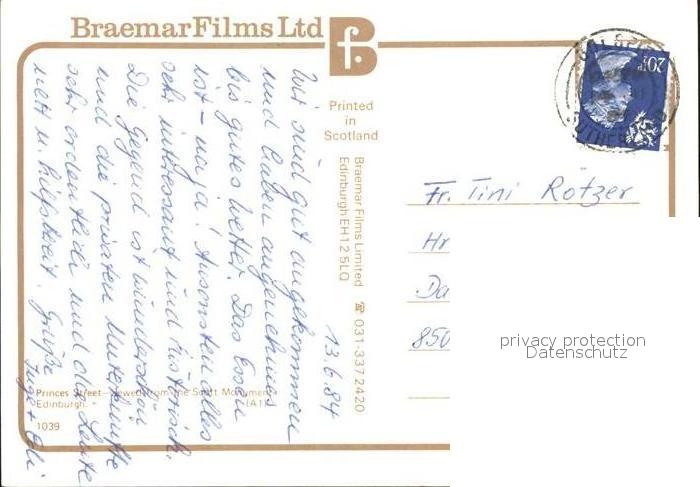 Braemar Films Ltd
Bf.
Printed
in
Scotland
Braemar Films Limited ☎ 031-337 2420
Edinburgh EH12 5LQ
20½P
13.6.84
Wir sind gut angekommen
und haben angenehmes
bis gutes Wetter. Das Essen
ist - naja! Ansonsten alles
sehr interessant und historisch.
Die Gegend ist wunderschön
und die privaten Unterkünfte
sehr ordentlich und die Leute
nett u. hilfsbereit. Grüße
Inge + Edi
Fr. Tini Rötzer
Hr
Da
850
privacy protection
Datenschutz
Princes Street—viewed from the Scott Monument,
Edinburgh. (A1)
1039